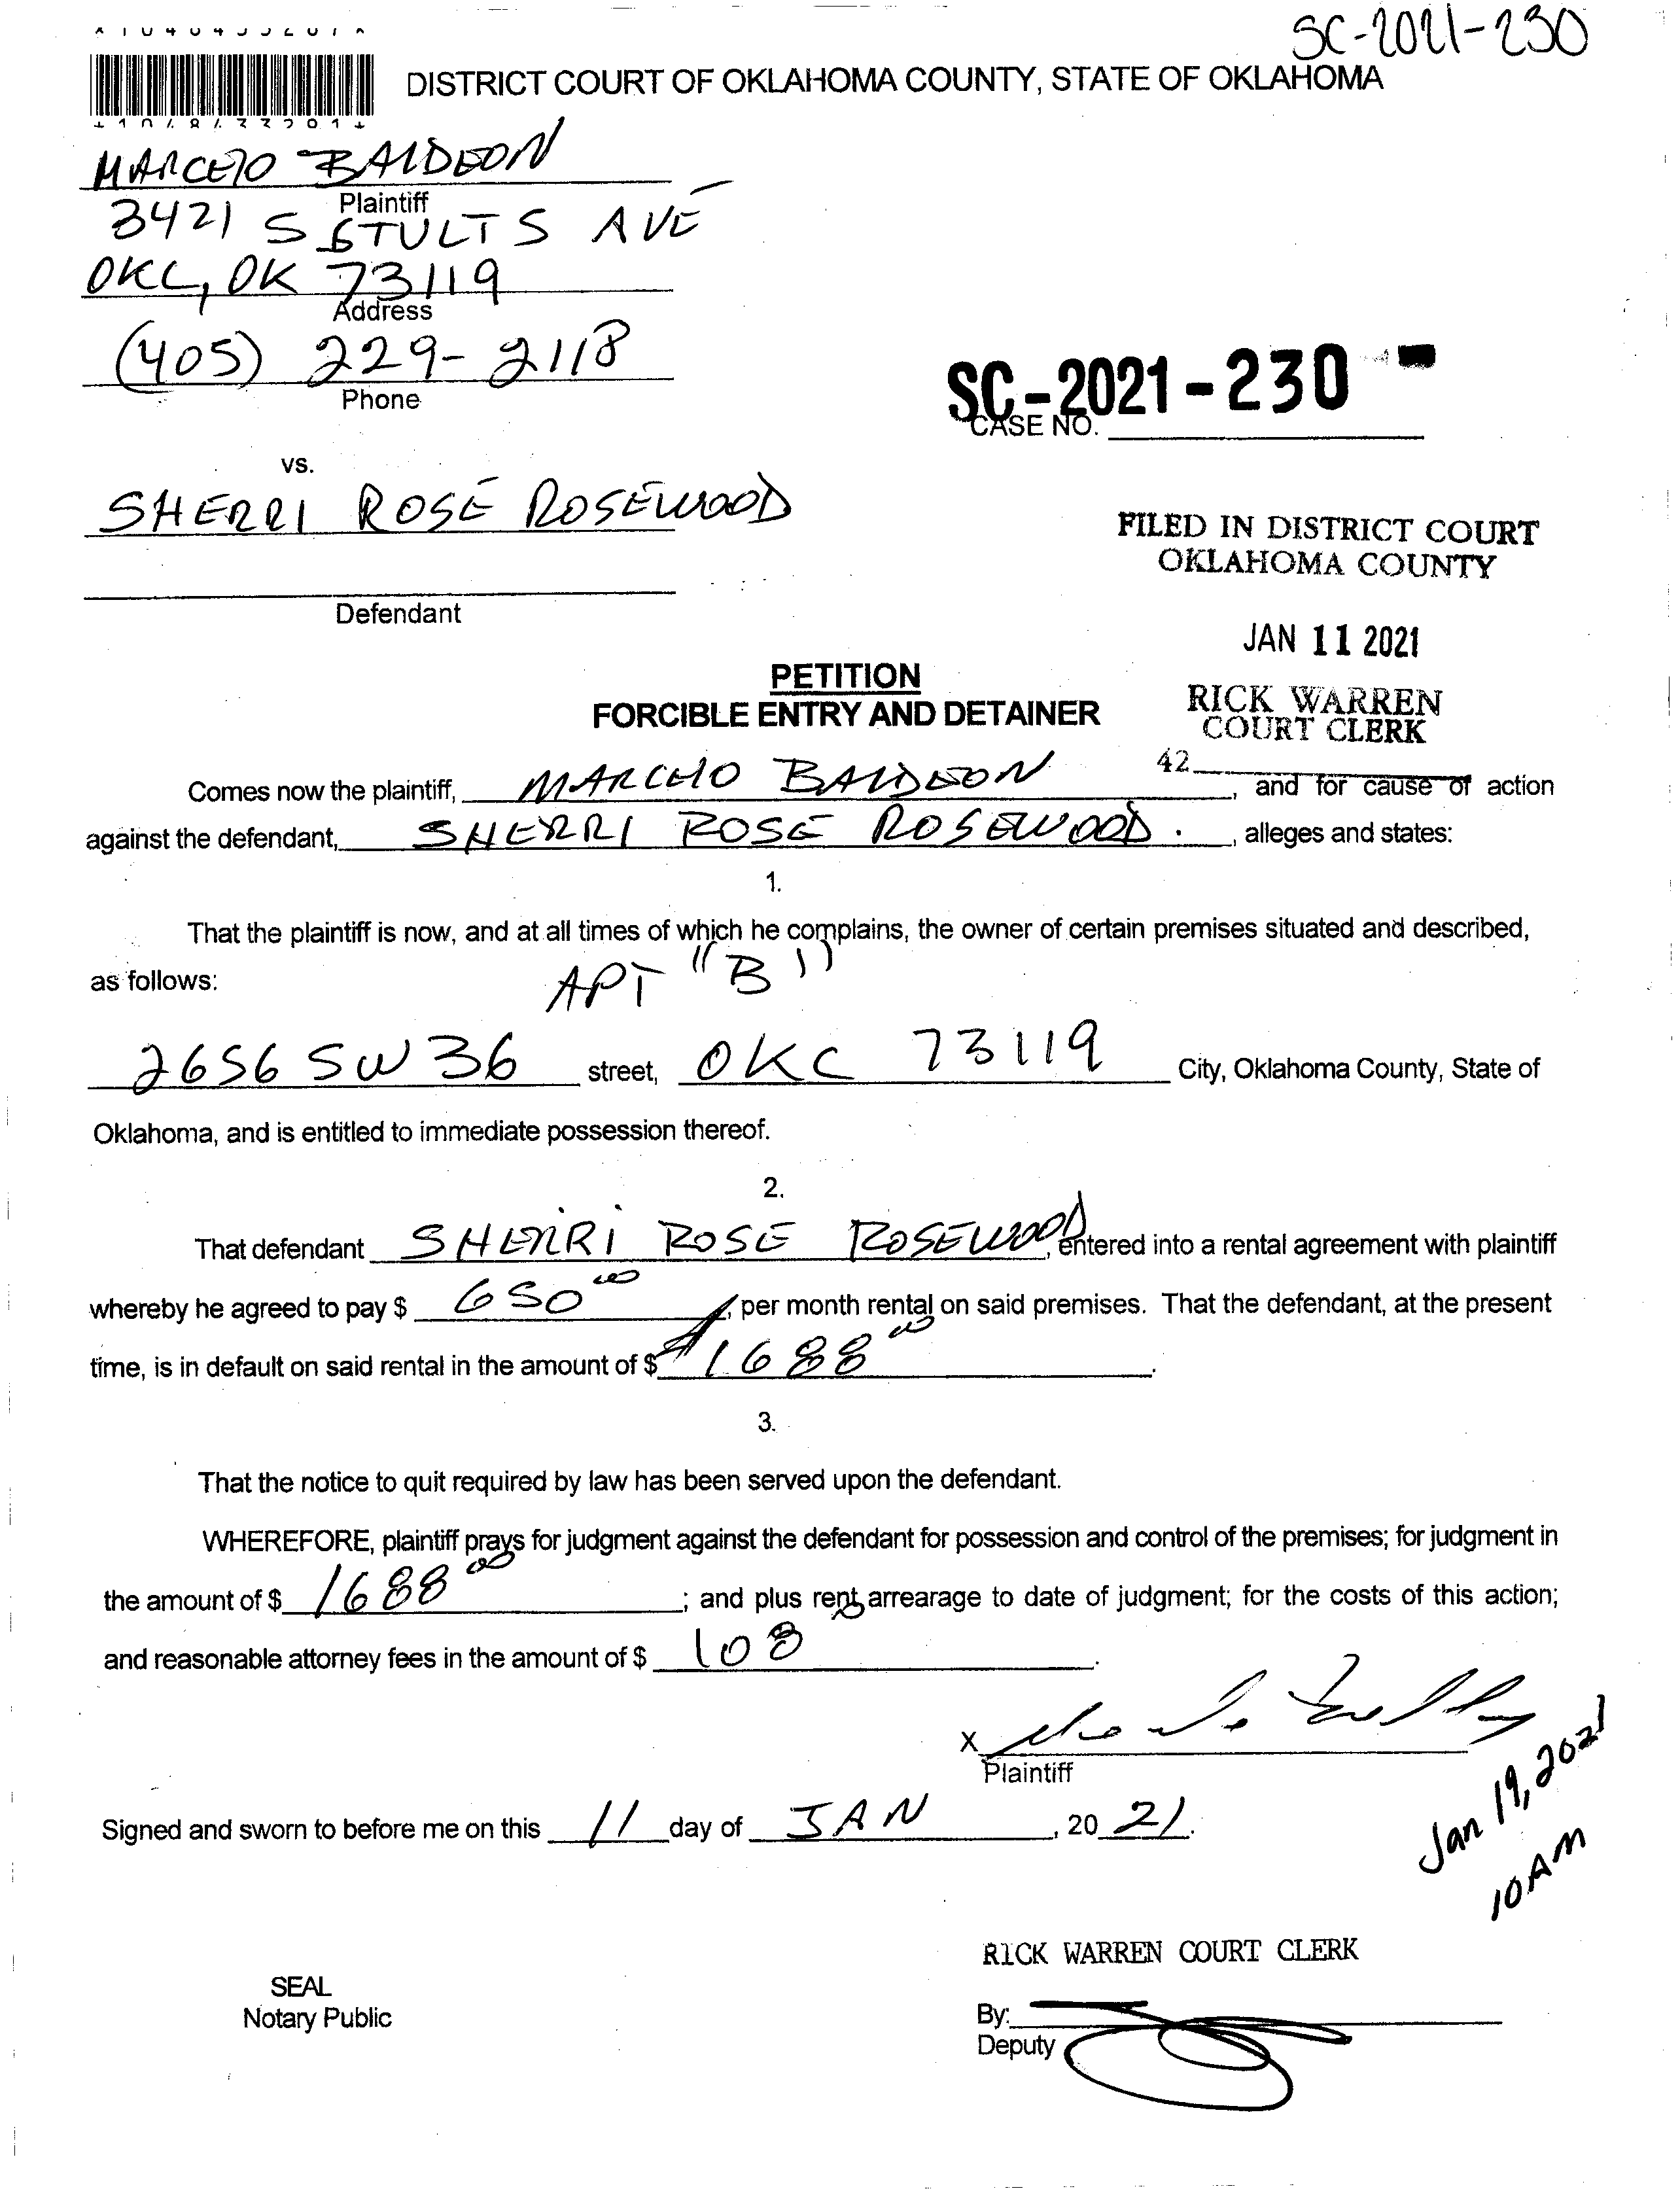 SC-2021-230
DISTRICT COURT OF OKLAHOMA COUNTY, STATE OF OKLAHOMA
MARCELO BALDEON
Plaintiff
3421 S STULTS AVE
OKC, OK 73119
Address
(405) 229-2118
Phone
SC-2021-230
CASE NO.
vs.
SHERRI ROSE ROSEWOOD
FILED IN DISTRICT COURT
OKLAHOMA COUNTY
Defendant
JAN 11 2021
PETITION
FORCIBLE ENTRY AND DETAINER
RICK WARREN
COURT CLERK
42
Comes now the plaintiff, MARCELO BALDEON, and for cause of action
against the defendant, SHERRI ROSE ROSEWOOD., alleges and states:
1.
That the plaintiff is now, and at all times of which he complains, the owner of certain premises situated and described,
as follows: APT "B"
2656 SW 36 street, OKC 73119 City, Oklahoma County, State of
Oklahoma, and is entitled to immediate possession thereof.
2.
That defendant SHERRI ROSE ROSEWOOD, entered into a rental agreement with plaintiff
whereby he agreed to pay $ 650 00, per month rental on said premises. That the defendant, at the present
time, is in default on said rental in the amount of $ 1688 00.
3.
That the notice to quit required by law has been served upon the defendant.
WHEREFORE, plaintiff prays for judgment against the defendant for possession and control of the premises; for judgment in
the amount of $ 1688 00; and plus rent arrearage to date of judgment; for the costs of this action;
and reasonable attorney fees in the amount of $ 108.
X
Plaintiff
Jan 19, 2021
10 AM
Signed and sworn to before me on this 11 day of JAN, 20 21.
RICK WARREN COURT CLERK
SEAL
Notary Public
By:
Deputy